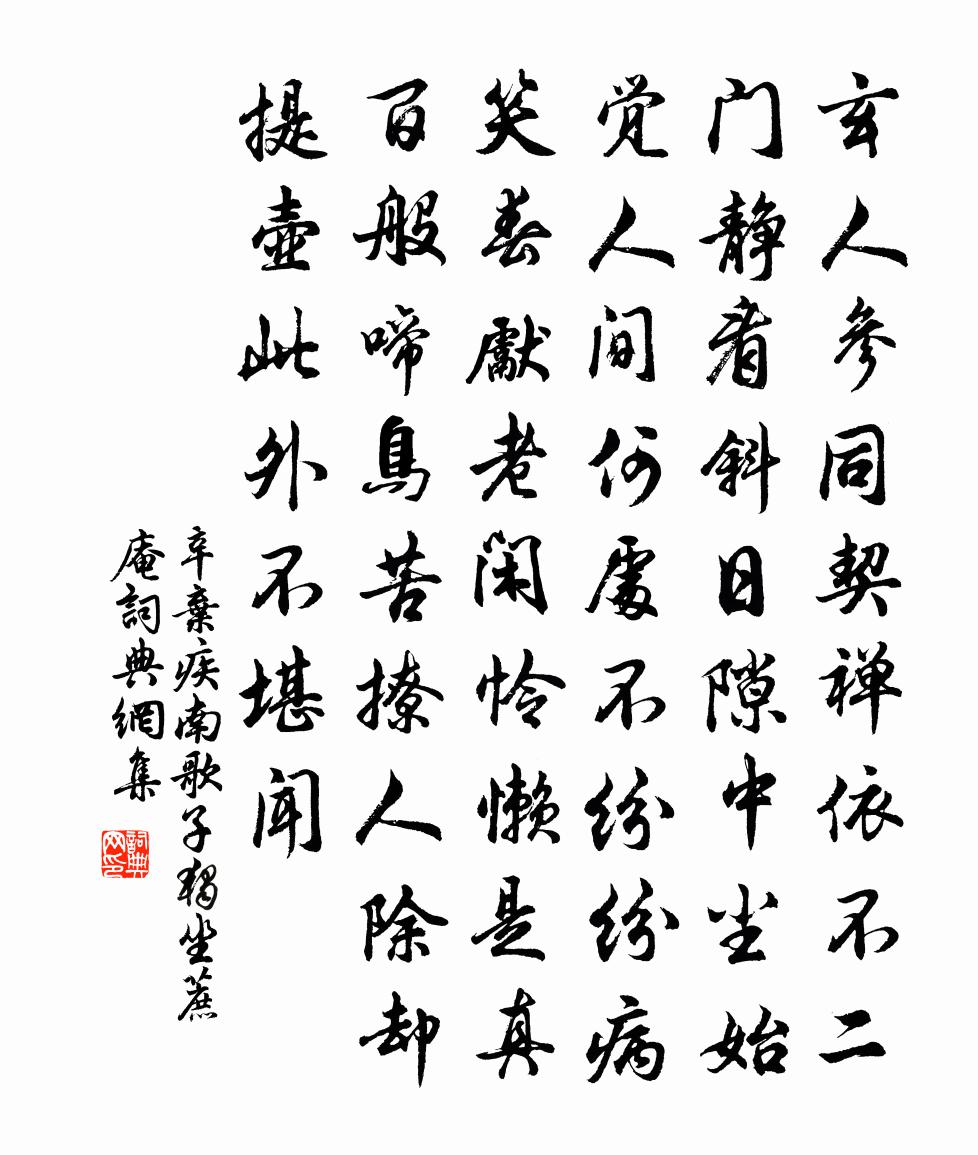 玄人参同契禅依不二
门静看斜日隙中尘始
觉人间何處不纷纷病
笑春獻老闲怜懒是真
百般啼鳥苦撩人除却
提壺此外不堪闻
辛棄疾南歌子獨坐蔗
庵詞典網集
詞典網印